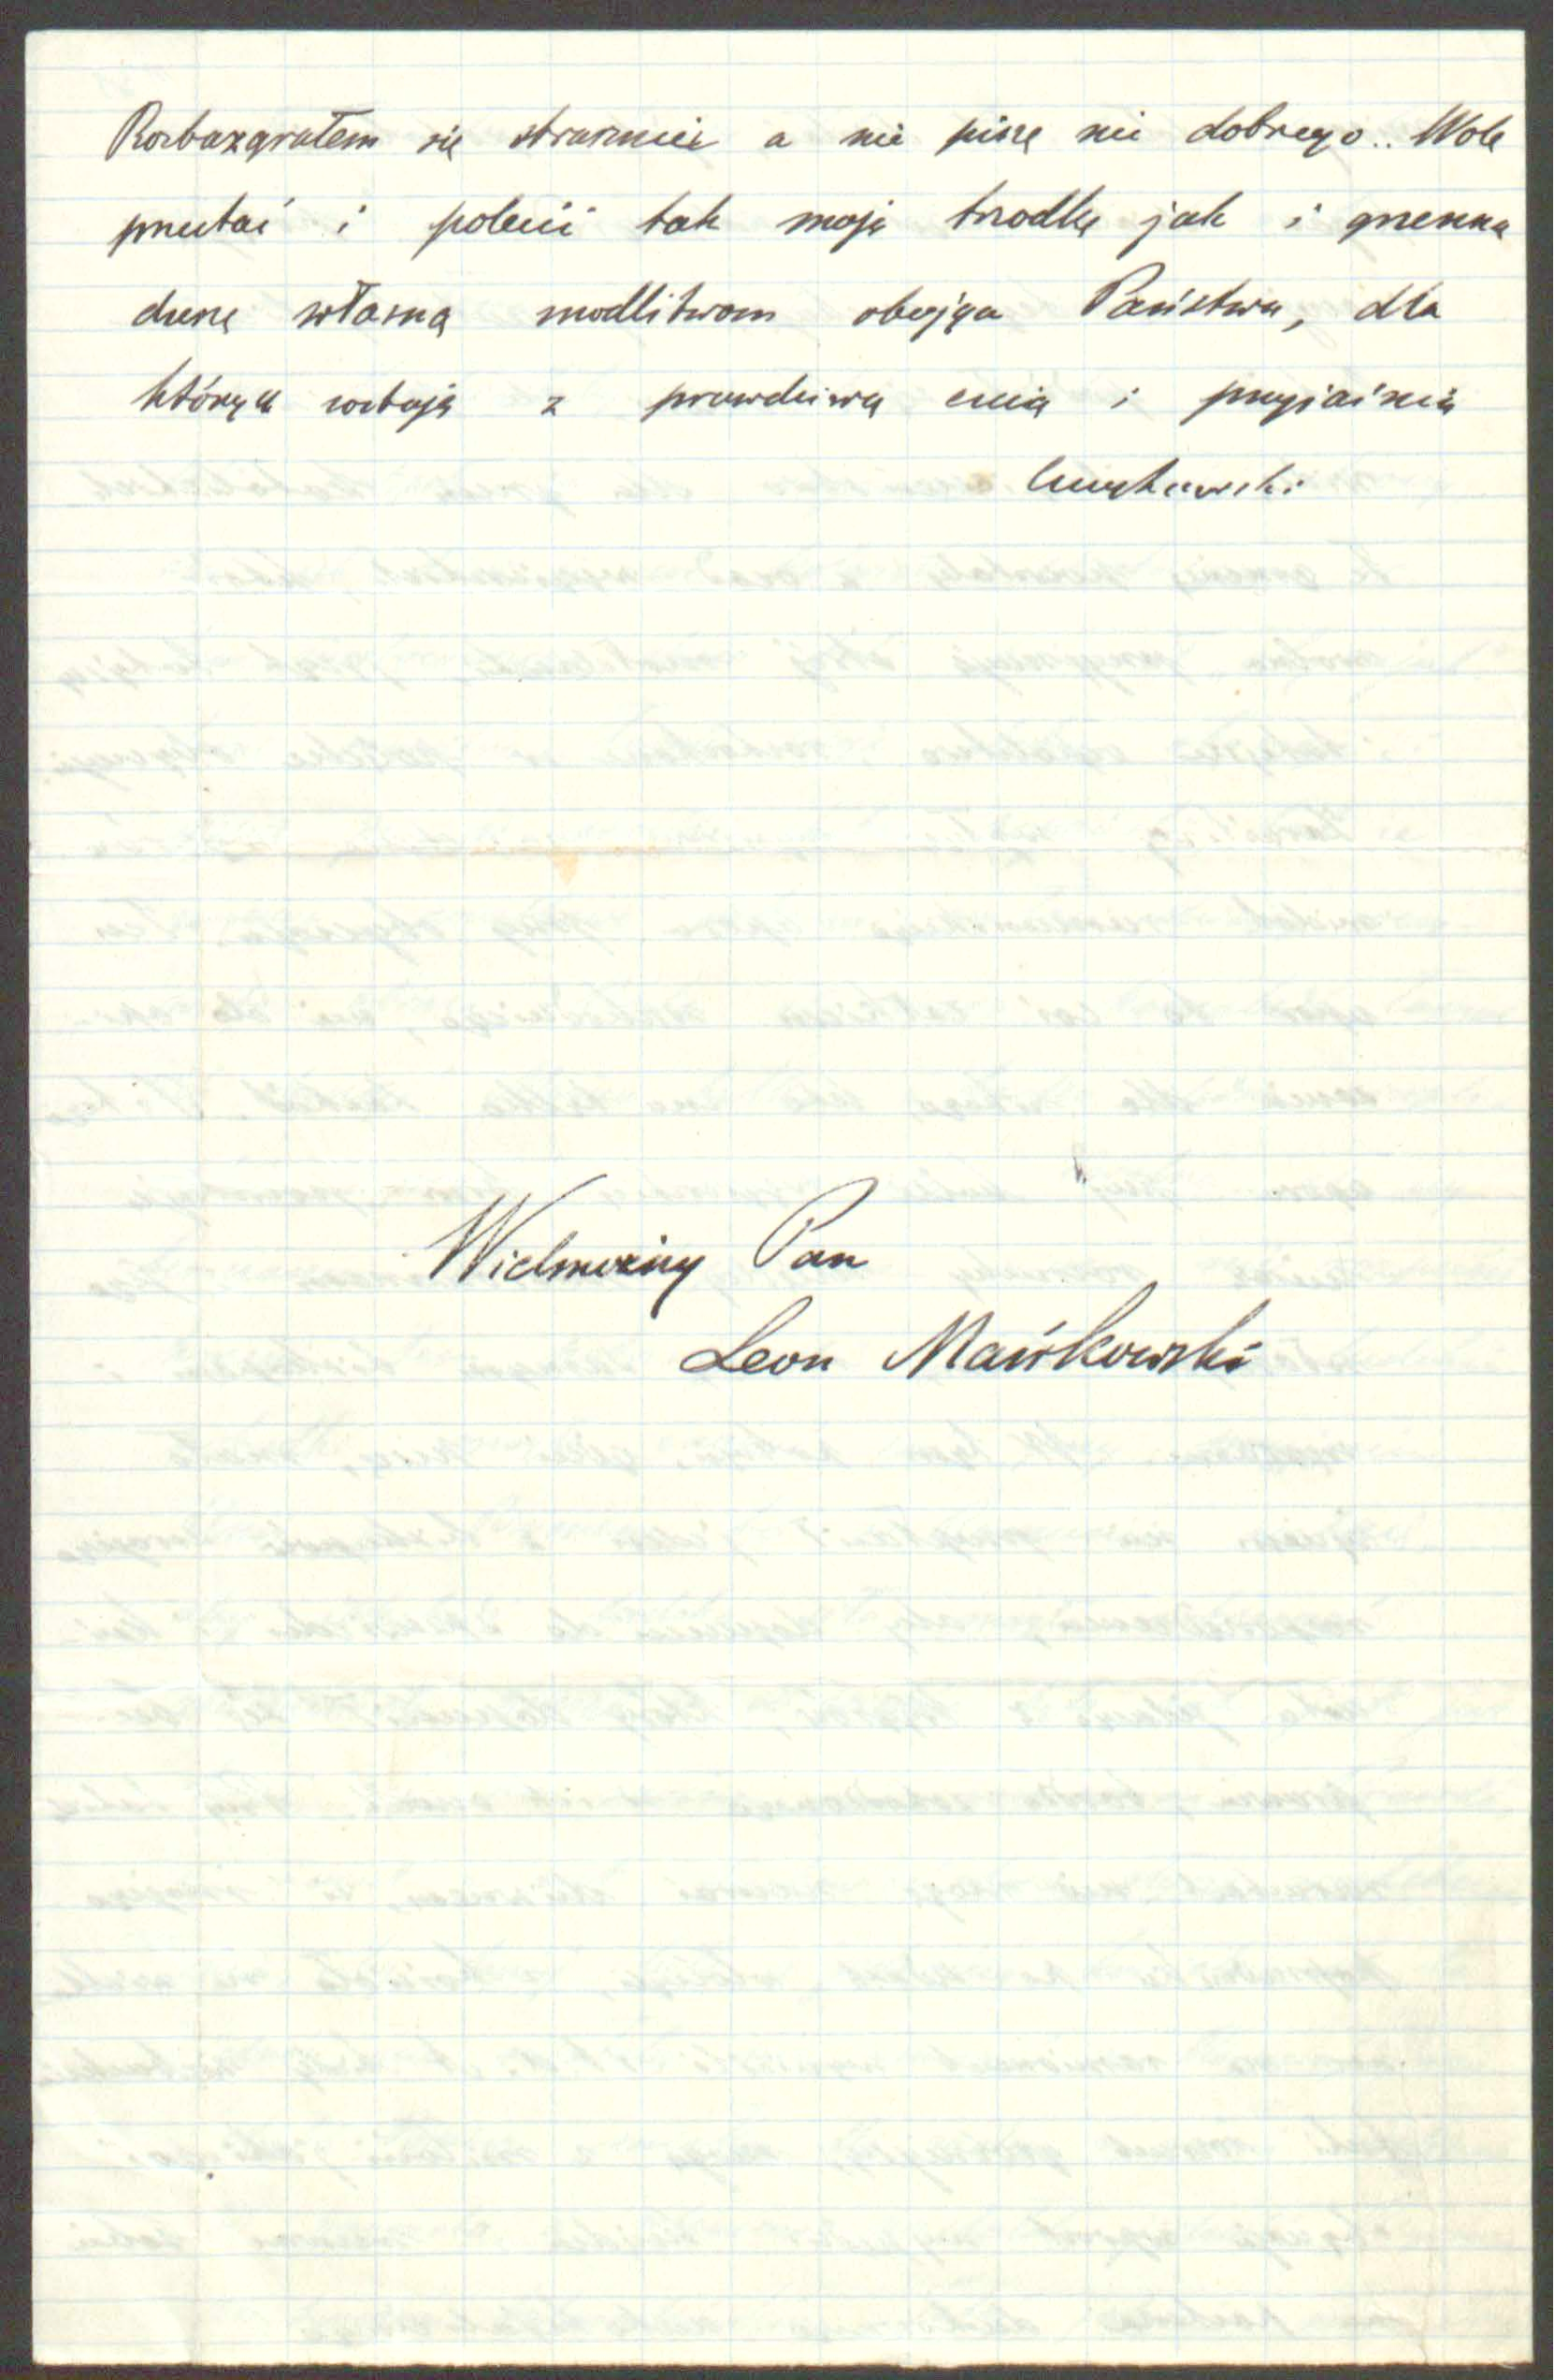 Rozbazgrałem się strasznie a nie piszę nic dobrego.. Wolę
przestać i polecić tak moją trzodkę jak i grzeszną
duszę własną modlitwom obojga Państwa, dla
których zostaję z prawdziwą czcią i przyjaźnią
Wielmożny Pan
Leon Mańkowski